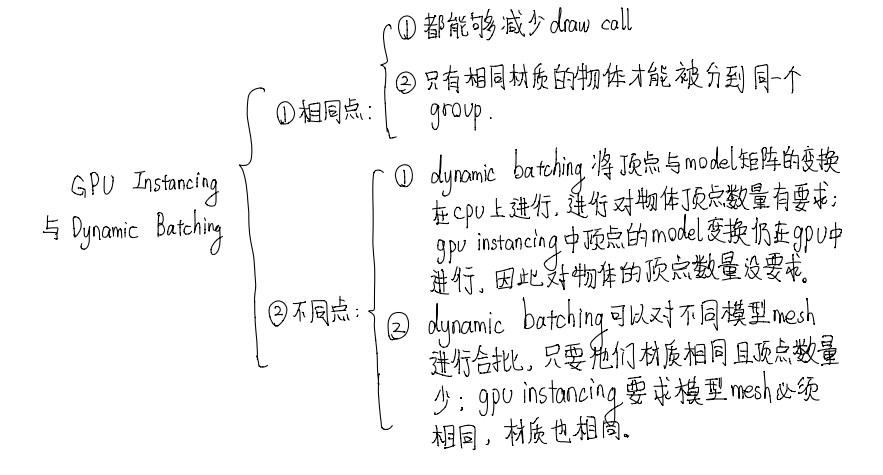 GPU Instancing
与 Dynamic Batching
①相同点:
①都能够减少 draw call
②只有相同材质的物体才能被分到同一个
group.
②不同点:
① dynamic batching 将顶点与model矩阵的变换
在cpu上进行,进行对物体顶点数量有要求;
gpu instancing中顶点的model变换仍在gpu中
进行,因此对物体的顶点数量没要求。
② dynamic batching可以对不同模型mesh
进行合批,只要他们材质相同且顶点数量
少;gpu instancing要求模型mesh必须
相同,材质也相同。